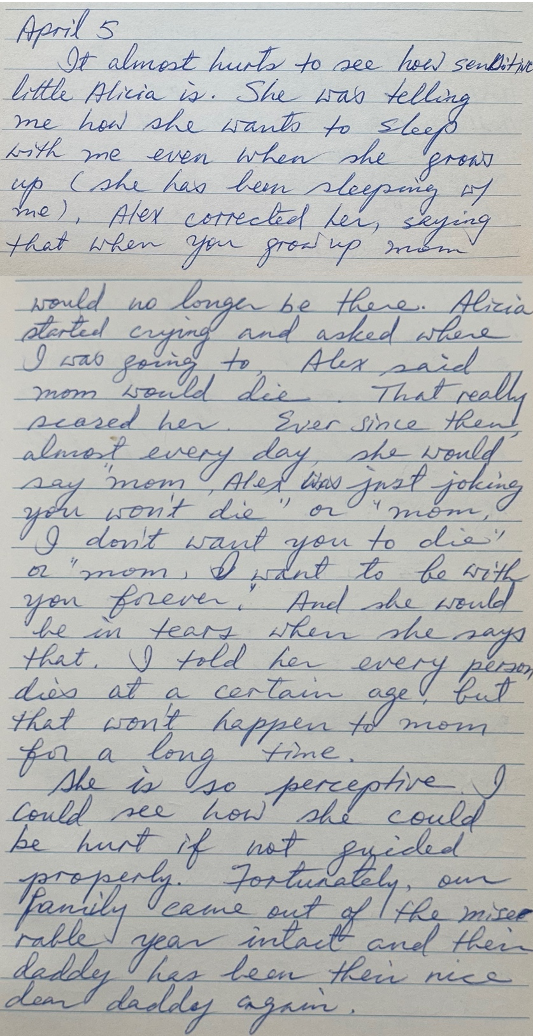 April 5
It almost hurts to see how sensitive
little Alicia is. She was telling
me how she wants to sleep
with me even when she grows
up (she has been sleeping w/
me). Alex corrected her, saying
that when you grow up mom
would no longer be there. Alicia
started crying and asked where
I was going to. Alex said
mom would die. That really
scared her. Ever since then,
almost every day, she would
say "mom, Alex was just joking
you won't die" or "mom,
I don't want you to die"
or "mom, I want to be with
you forever." And she would
be in tears when she says
that. I told her every person
dies at a certain age, but
that won't happen to mom
for a long time.
She is so perceptive. I
could see how she could
be hurt if not guided
properly. Fortunately, our
family came out of the mise
rable year intact and their
daddy has been their nice
dear daddy again.